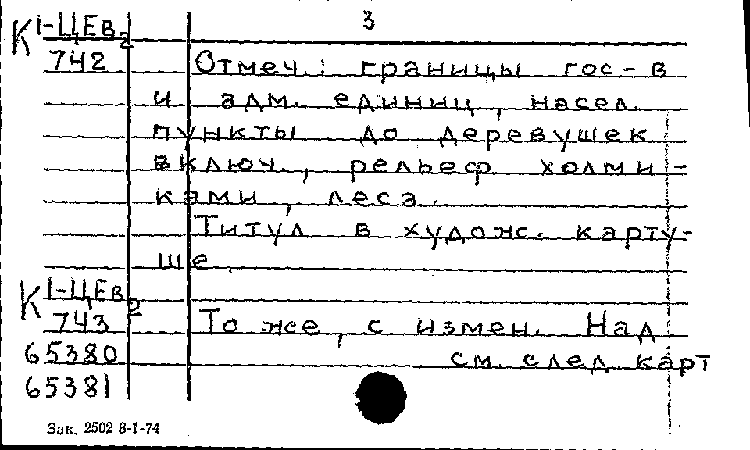 3
К 1-ЦЕв. 2
742 Отмеч.: границы гос-в
и адм. единиц, насел.
пункты до деревушек
включ., рельеф холми-
ками, леса.
Титул в худож. карту-
ше
К 1-ЦЕв 2
743 То же, с измен. Над
65380 см. след карт
65381
Зак. 2502 8-1-74